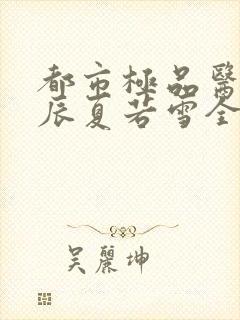 都市極品醫
辰夏若雪全
吴麗坤